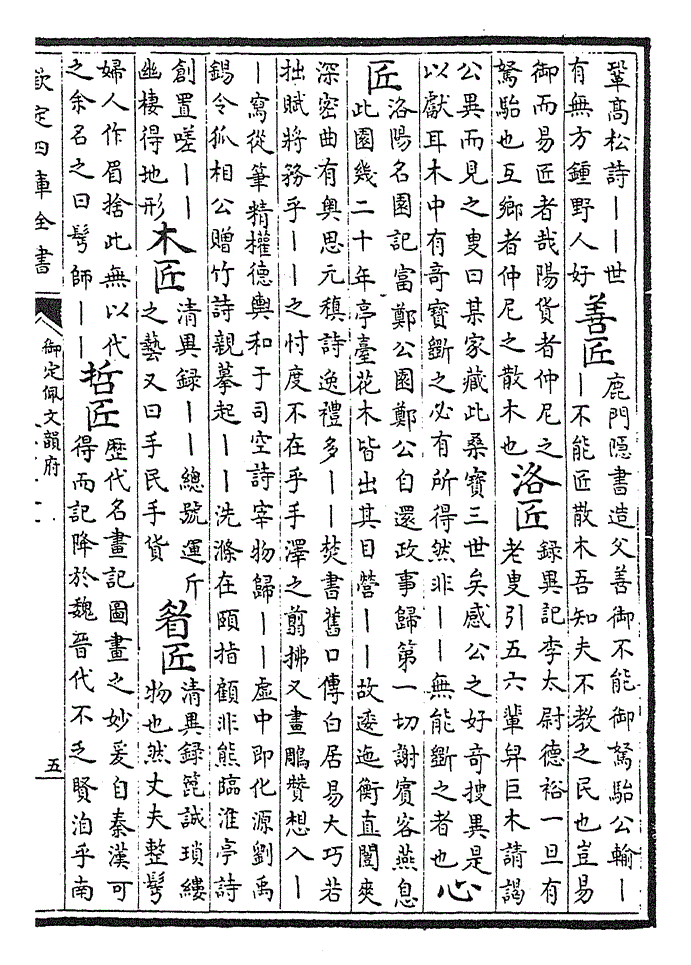 鞏髙松詩｜｜世
有無方鍾野人好
善匠
鹿門隠書造父善御不能御駑駘公輸｜
｜不能匠散木吾知夫不教之民也豈易
御而易匠者哉陽貨者仲尼之
駑駘也互鄉者仲尼之散木也
洛匠
録異記李太尉德裕一旦有
老叟引五六輩舁巨木請謁
公異而見之叟曰某家藏此桑寳三世矣感公之好竒搜異是
以獻耳木中有竒寳斵之必有所得然非｜｜無能斵之者也
心
匠
洛陽名園記富鄭公園鄭公自還政事歸第一切謝賓客燕息
此園幾二十年亭臺花木皆出其目營｜｜故逶迤衡直闓爽
深密曲有奥思元稹詩逸禮多｜｜焚書舊口傳白居易大巧若
拙賦將務乎｜｜之忖度不在乎手澤之翦拂又畫鵰贊想入｜
｜寫從筆精權德輿和于司空詩宰物歸｜｜虛中即化源劉禹
錫令狐相公贈竹詩親摹起｜｜洗滌在頤指顧非能臨淮亭詩
創置嗟｜｜
幽棲得地形
木匠
清異録｜｜總號運斤
之藝又曰手民手貨
睂匠
清異録篦誠瑣縷
物也然丈夫整髩
婦人作眉捨此無以代
之余名之曰髩師｜｜
哲匠
歴代名畫記圖畫之妙爰自秦漢可
得而記降於魏晉代不乏賢洎乎南
欽定四庫全書
御定佩文韻府
五